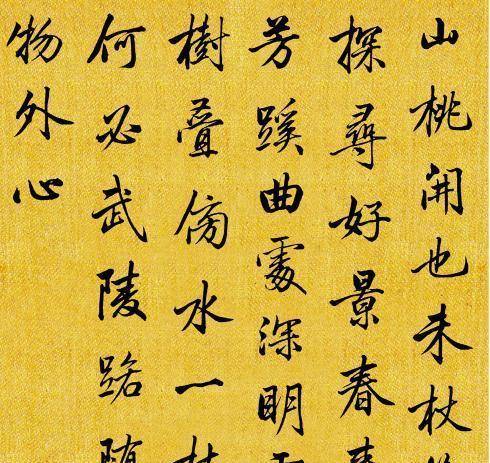 山桃開也未杖
探尋好景春
芳蹊曲處深明
樹疊傍水一
何必武陵路
物外心